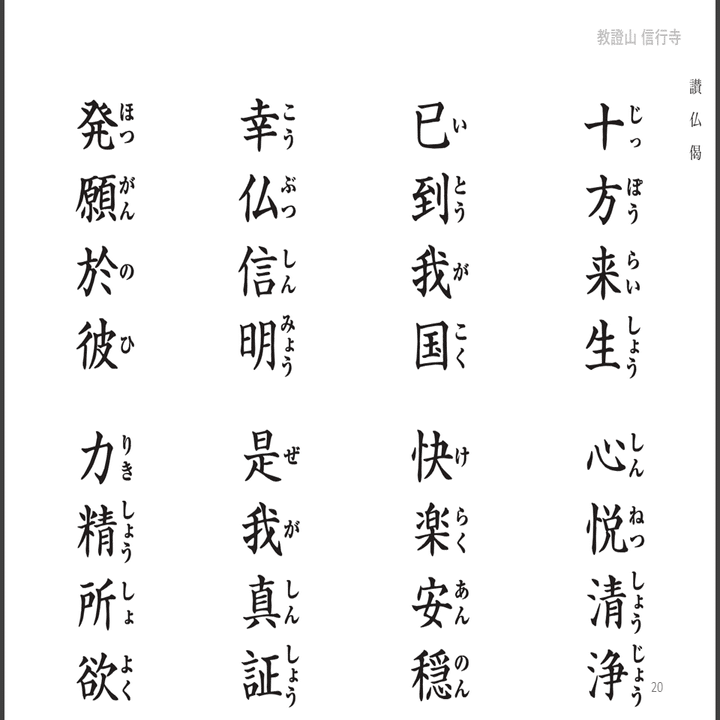 教證山 信行寺
讃仏偈
十方来生 心悦清浄
じっ ぽう らい しょう しん ねつ しょう じょう
已到我国 快楽安穏
い とう が こく け らく あん のん
幸仏信明 是我真証
こう ぶつ しん みょう ぜ が しん しょう
発願於彼 力精所欲
ほつ がん の ひ りき しょう しょ よく
20